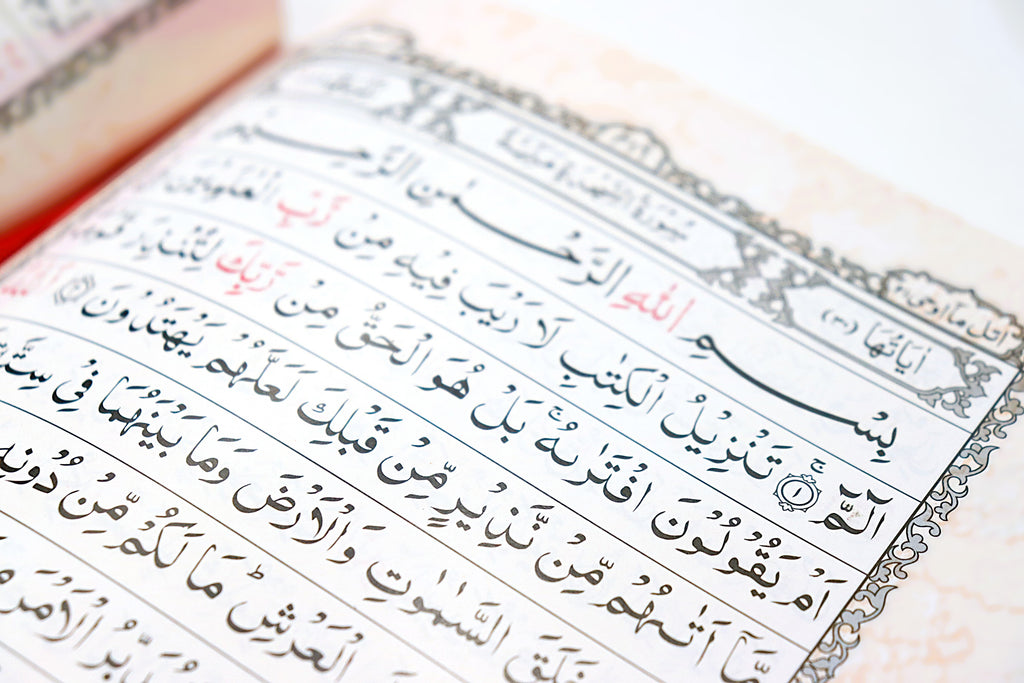 اتل ما اوحی ٢١
اٰيَاتُهَا (٣٠) سُوْرَةُ السَّجْدَةِ مَكِّيَّةٌ
بِسْمِ اللّٰهِ الرَّحْمٰنِ الرَّحِيْمِ
الٓمّٓ ۚ﴿١﴾ تَنْزِيْلُ الْكِتٰبِ لَا رَيْبَ فِيْهِ مِنْ رَّبِّ الْعٰلَمِيْنَ
اَمْ يَقُوْلُوْنَ افْتَرٰىهُ ۚ بَلْ هُوَ الْحَقُّ مِنْ رَّبِّكَ لِتُنْذِرَ قَوْمًا
مَّاۤ اَتٰىهُمْ مِّنْ نَّذِيْرٍ مِّنْ قَبْلِكَ لَعَلَّهُمْ يَهْتَدُوْنَ
خَلَقَ السَّمٰوٰتِ وَالْاَرْضَ وَمَا بَيْنَهُمَا فِيْ سِتَّةِ
الْعَرْشِ ؕ مَا لَكُمْ مِّنْ دُوْنِهٖ
يُدَبِّرُ الْاَمْرَ